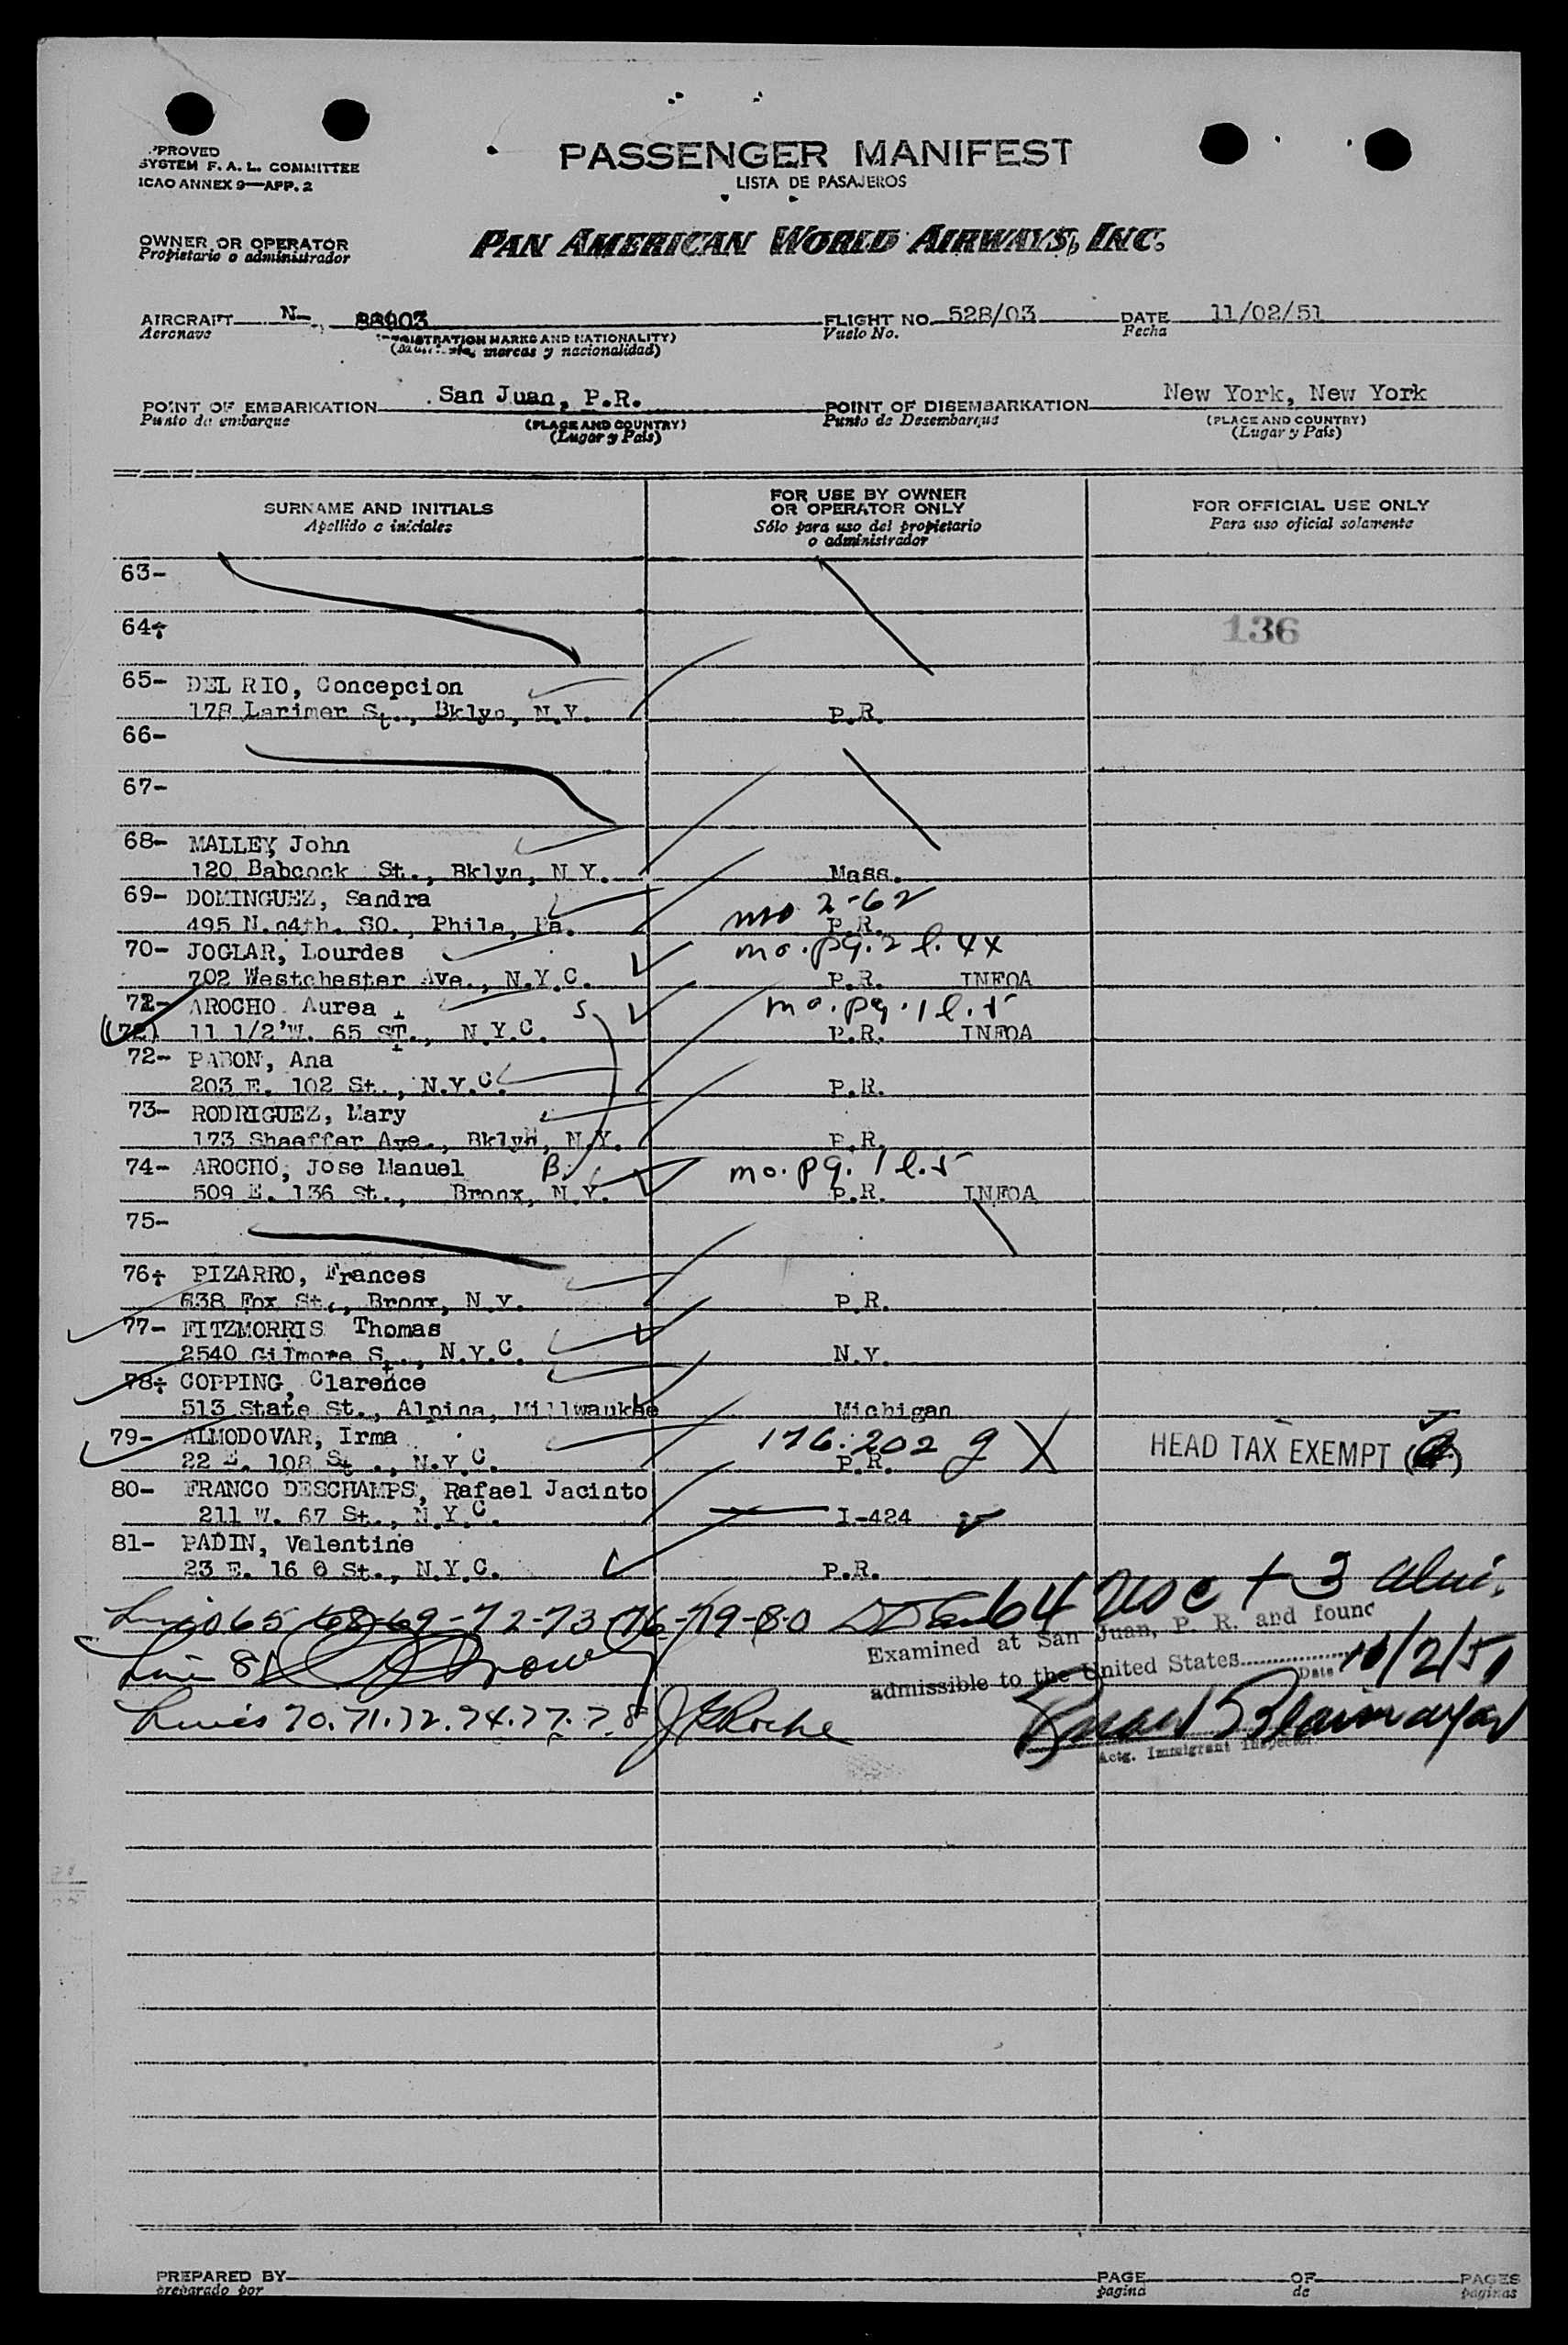 PASSENGER MANIFEST
LISTA DE PASAJEROS
SYSTEM F. A. L. COMMITTEE
ICAO ANNEX 9—APP. 2
OWNER OR OPERATOR
Propietario o administrador
PAN AMERICAN WORLD AIRWAYS, INC.
AIRCRAFT N- 88903 FLIGHT NO. 528/03 DATE 11/02/51
Aeronave Vuelo No. Fecha
MARKS AND NATIONALITY)
marcas y nacionalidad)
POINT OF EMBARKATION San Juan, P.R. POINT OF DISEMBARKATION New York, New York
Punto de embarque (PLACE AND COUNTRY) Punto de Desembarque (PLACE AND COUNTRY)
(Lugar y País) (Lugar y País)
SURNAME AND INITIALS FOR USE BY OWNER OR OPERATOR ONLY FOR OFFICIAL USE ONLY
Apellido e iniciales Sólo para uso del propietario o administrador Para uso oficial solamente
63-
64- 136
65- DEL RIO, Concepcion
178 Larimer St., Bklyn, N.Y. P.R.
66-
67-
68- MALLEY, John
120 Babcock St., Bklyn, N.Y. Mass.
69- DOMINGUEZ, Sandra 2-62
495 N. Phila, Pa. P.R.
70- JOGLAR, Lourdes mo. pg. 2 l.
702 Westchester Ave., N.Y.C. P.R. INFOA
AROCHO Aurea S mo. pg. 1 l. 5
11 1/2 W. 65 ST., N.Y.C. P.R. INFOA
72- PABON, Ana
203 E. 102 St., N.Y.C. P.R.
73- RODRIGUEZ, Mary
173 Shaeffer Ave., Bklyn, N.Y. P.R.
74- AROCHO, Jose Manuel B. mo. pg. 1 l. 5
509 E. 136 St., Bronx, N.Y. P.R. INFOA
75-
76- PIZARRO, Frances
638 Fox St., Bronx, N.Y. P.R.
77- FITZMORRIS Thomas
2540 Gilmore St., N.Y.C. N.Y.
78- COPPING, Clarence
513 State St., Alpina, Millwaukee Michigan
79- ALMODOVAR, Irma 176.202 g X HEAD TAX EXEMPT
22 E. 108 St., N.Y.C. P.R.
80- FRANCO DESCHAMPS, Rafael Jacinto
211 W. 67 St., N.Y.C. I-424
81- PADIN, Valentine
23 E. 16 0 St., N.Y.C. P.R.
65 68-69-72-73-76-79-80 64 + 3
Examined at San Juan, P. R. and found
Line 81
admissible to the United States 10/2/51
Date
Lines 70.71.72.74.77.78 Roche
Actg. Immigrant Inspector
PREPARED BY PAGE OF PAGES
preparado por pagina de paginas